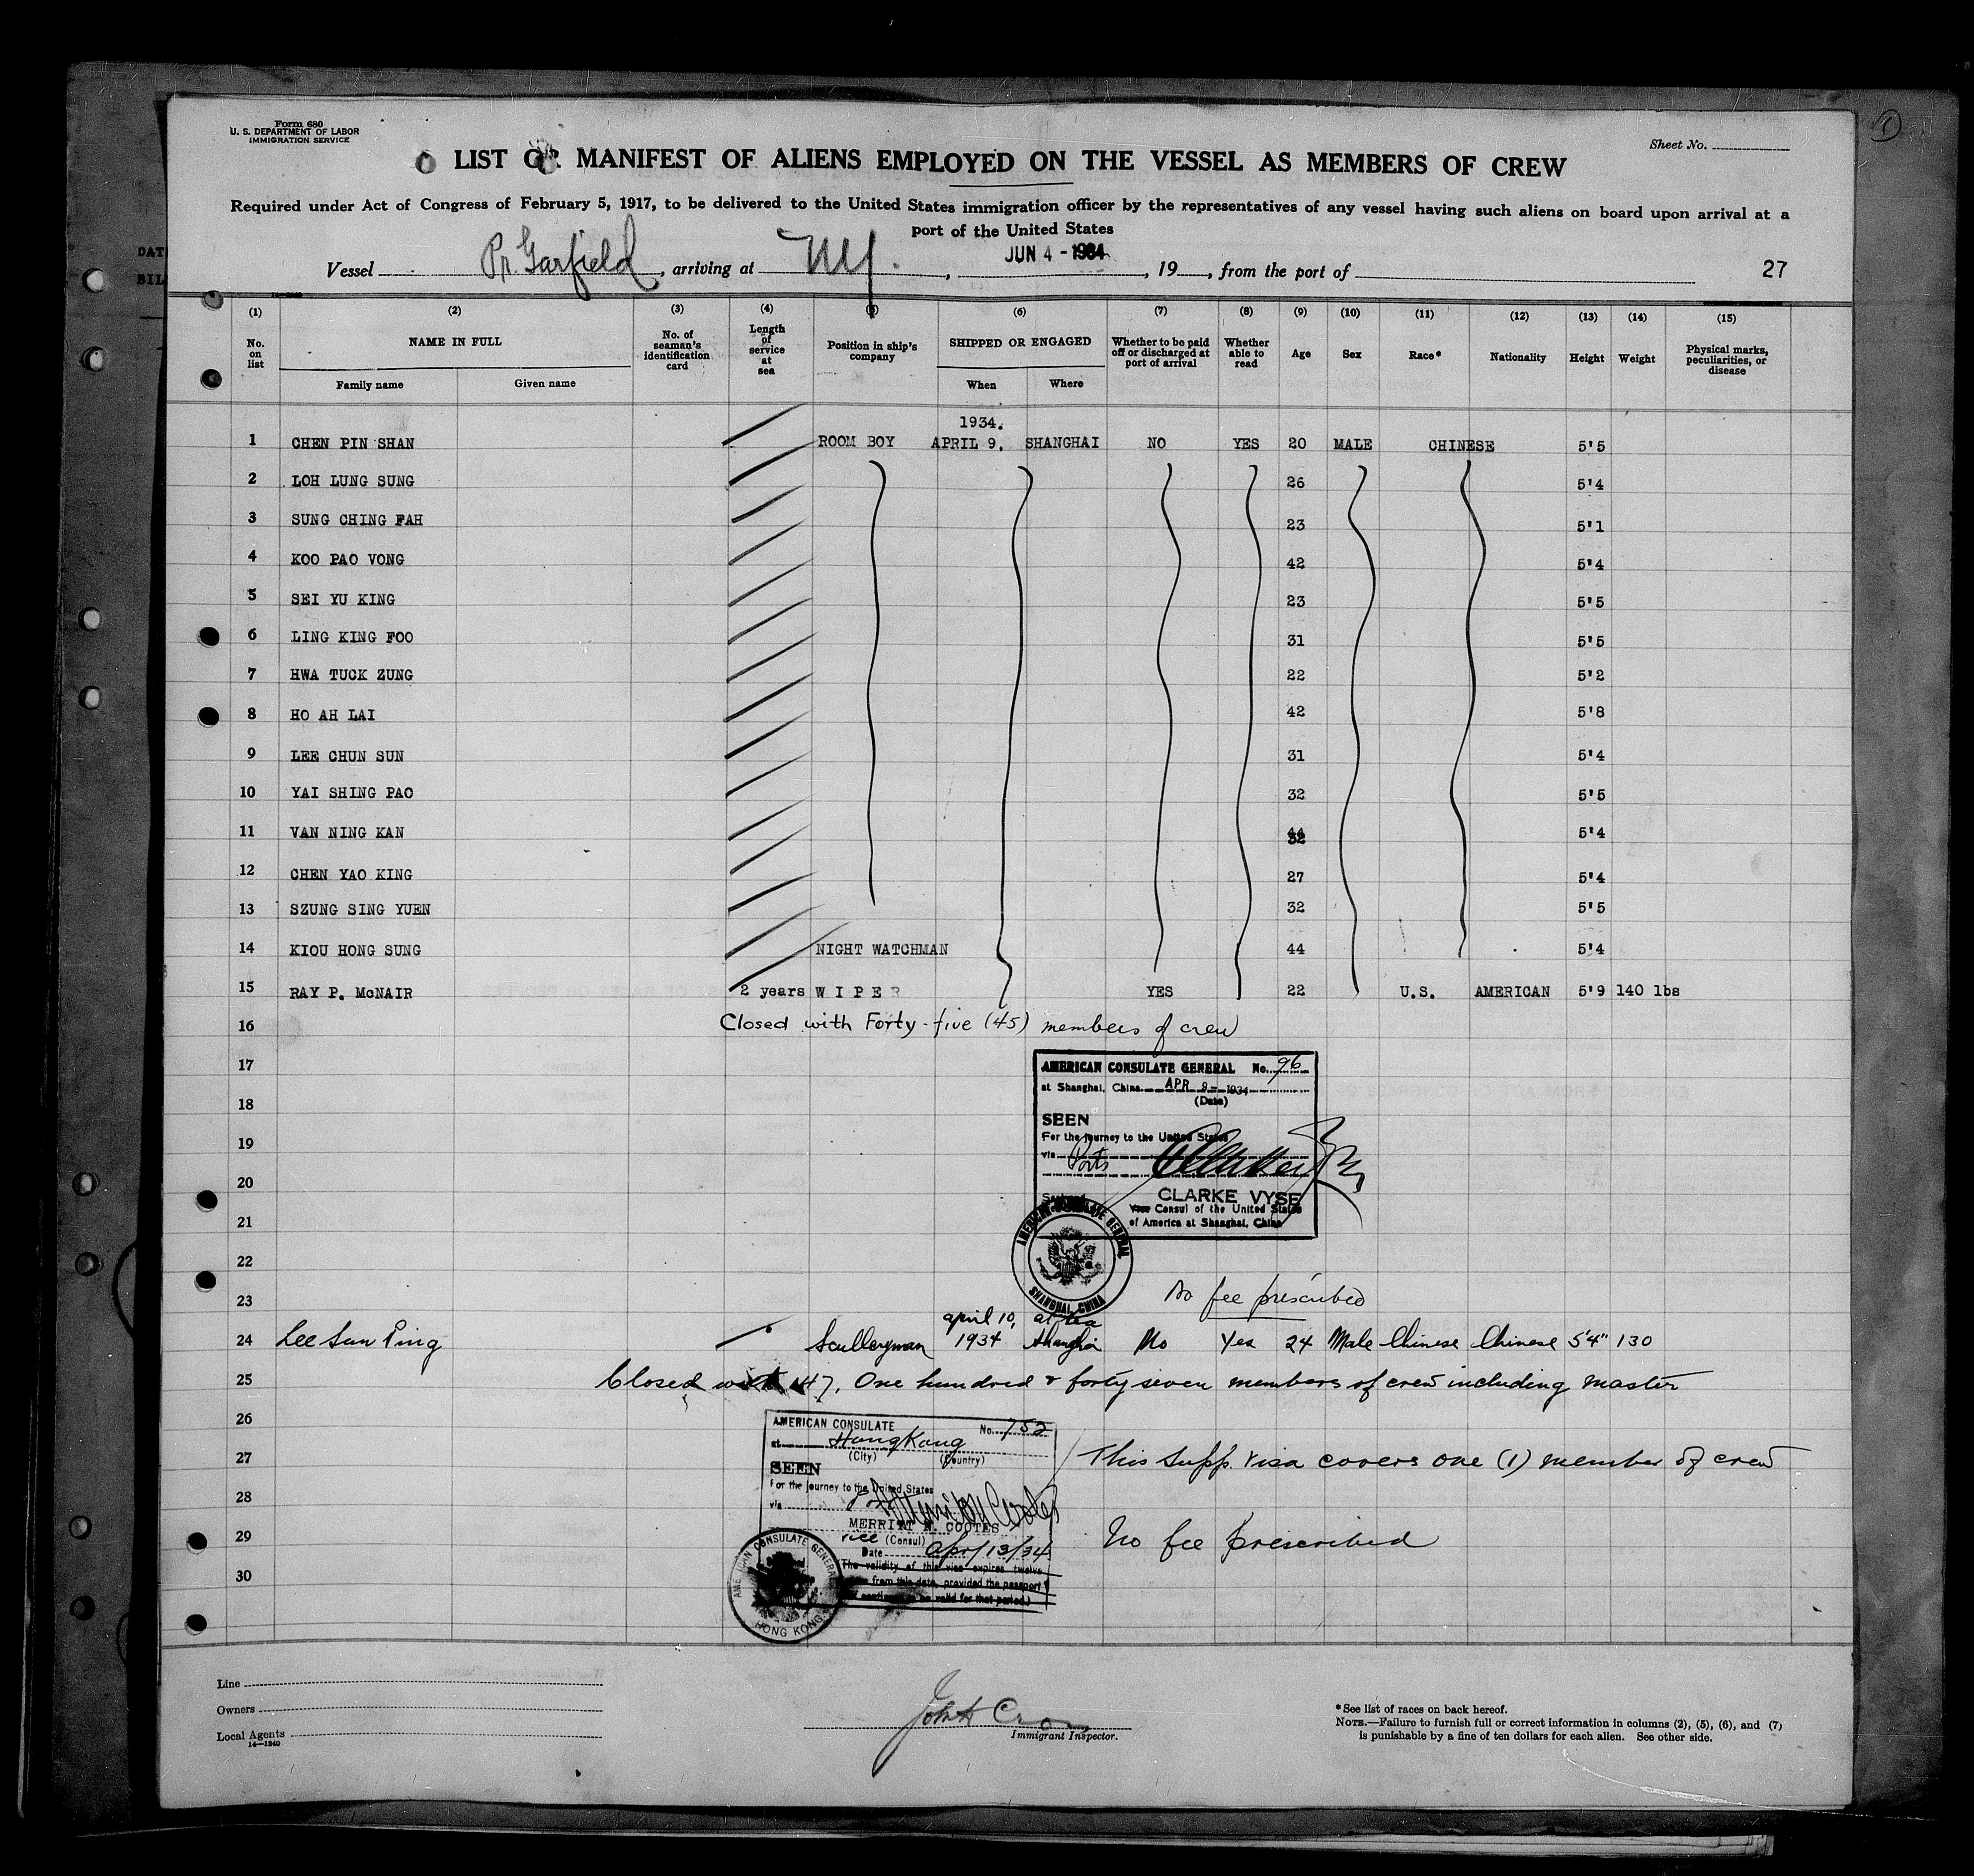 Form 680
U. S. DEPARTMENT OF LABOR
IMMIGRATION SERVICE
Sheet No.
LIST OR MANIFEST OF ALIENS EMPLOYED ON THE VESSEL AS MEMBERS OF CREW
Required under Act of Congress of February 5, 1917, to be delivered to the United States immigration officer by the representatives of any vessel having such aliens on board upon arrival at a
port of the United States
Vessel Pr. Garfield, arriving at NY., JUN 4 - 1934, 19, from the port of 27
(1) (2) (3) (4) (5) (6) (7) (8) (9) (10) (11) (12) (13) (14) (15)
No. on list NAME IN FULL No. of seaman's identification card Length of service at sea Position in ship's company SHIPPED OR ENGAGED Whether to be paid off or discharged at port of arrival Whether able to read Age Sex Race* Nationality Height Weight Physical marks, peculiarities, or disease
Family name Given name When Where
1934.
1 CHEN PIN SHAN ROOM BOY APRIL 9. SHANGHAI NO YES 20 MALE CHINESE 5'5
2 LOH LUNG SUNG 26 5'4
3 SUNG CHING FAH 23 5'1
4 KOO PAO VONG 42 5'4
5 SEI YU KING 23 5'5
6 LING KING FOO 31 5'5
7 HWA TUCK ZUNG 22 5'2
8 HO AH LAI 42 5'8
9 LEE CHUN SUN 31 5'4
10 YAI SHING PAO 32 5'5
11 VAN NING KAN 5'4
12 CHEN YAO KING 27 5'4
13 SZUNG SING YUEN 32 5'5
14 KIOU HONG SUNG NIGHT WATCHMAN 44 5'4
15 RAY P. McNAIR 2 years WIPER YES 22 U.S. AMERICAN 5'9 140 lbs
16 Closed with Forty-five (45) members of crew
17 AMERICAN CONSULATE GENERAL No. 96
at Shanghai, China APR 9 - 1934
(Date)
18
SEEN
19 For the journey to the United States
via Ports
20
CLARKE VYSE
Vice Consul of the United States
21 of America at Shanghai, China
AMERICAN CONSULATE GENERAL
22
SHANGHAI, CHINA
23 No fee prescribed
april 10, at sea
24 Lee Sun Ping Sculleryman 1934 Shanghai No Yes 24 Male Chinese Chinese 5'4" 130
25 Closed with 147, One hundred & forty seven members of crew including master
26 AMERICAN CONSULATE No. 752
at Hong Kong
(City) (Country)
27 This supp. visa covers one (1) member of crew
SEEN
for the journey to the United States
28 via
MERRITT N. COOTES
29 vice (Consul) No fee prescribed
Date Apr/13/34
The validity of this visa expires twelve
30 from this date, provided the passport
continues to be valid for that period.)
AMERICAN CONSULATE GENERAL
HONG KONG
Line
Owners
Local Agents
14—1240
John
Immigrant Inspector.
* See list of races on back hereof.
NOTE.—Failure to furnish full or correct information in columns (2), (5), (6), and (7)
is punishable by a fine of ten dollars for each alien. See other side.